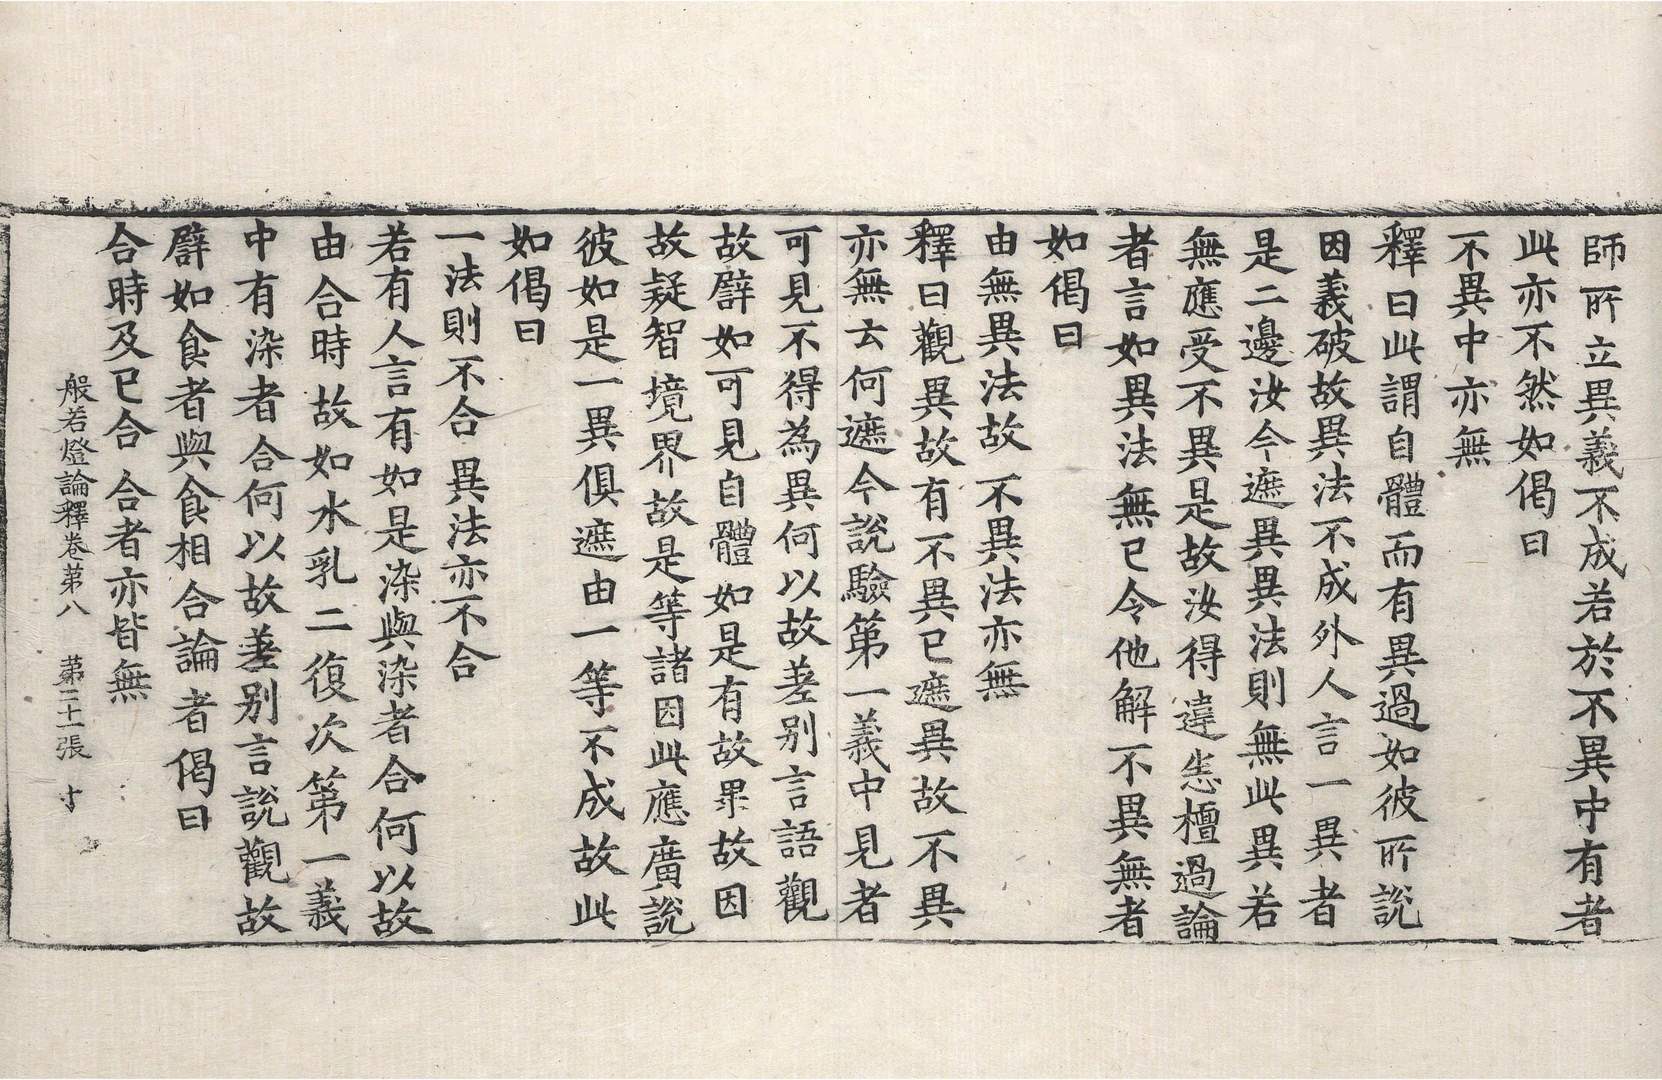 師所立異義不成若於不異中有者
此亦不然如偈曰
不異中亦無
釋曰此謂自體而有異過如彼所說
因義破故異法不成外人言一異者
是二邊汝今遮異異法則無此異若
無應受不異是故汝得違恙檀過論
者言如異法無已令他解不異無者
如偈曰
由無異法故 不異法亦無
釋曰觀異故有不異已遮異故不異
亦無云何遮今說驗第一義中見者
可見不得為異何以故差别言語觀
故譬如可見自體如是有故果故因
故疑智境界故是等諸因此應廣說
彼如是一異俱遮由一等不成故此
如偈曰
一法則不合 異法亦不合
若有人言有如是染與染者合何以故
由合時故如水乳二復次第一義
中有染者合何以故差别言說觀故
譬如食者與食相合論者偈曰
合時及已合 合者亦皆無
般若燈論釋卷第八 第二十一張 寸